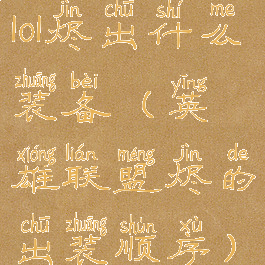 jìn chū shí me
101烬出什么
zhuāng bèi yīng
装备（英
xióng lián méng jìn de
雄联盟烬的
chū zhuāng shùn xù
出装顺序）